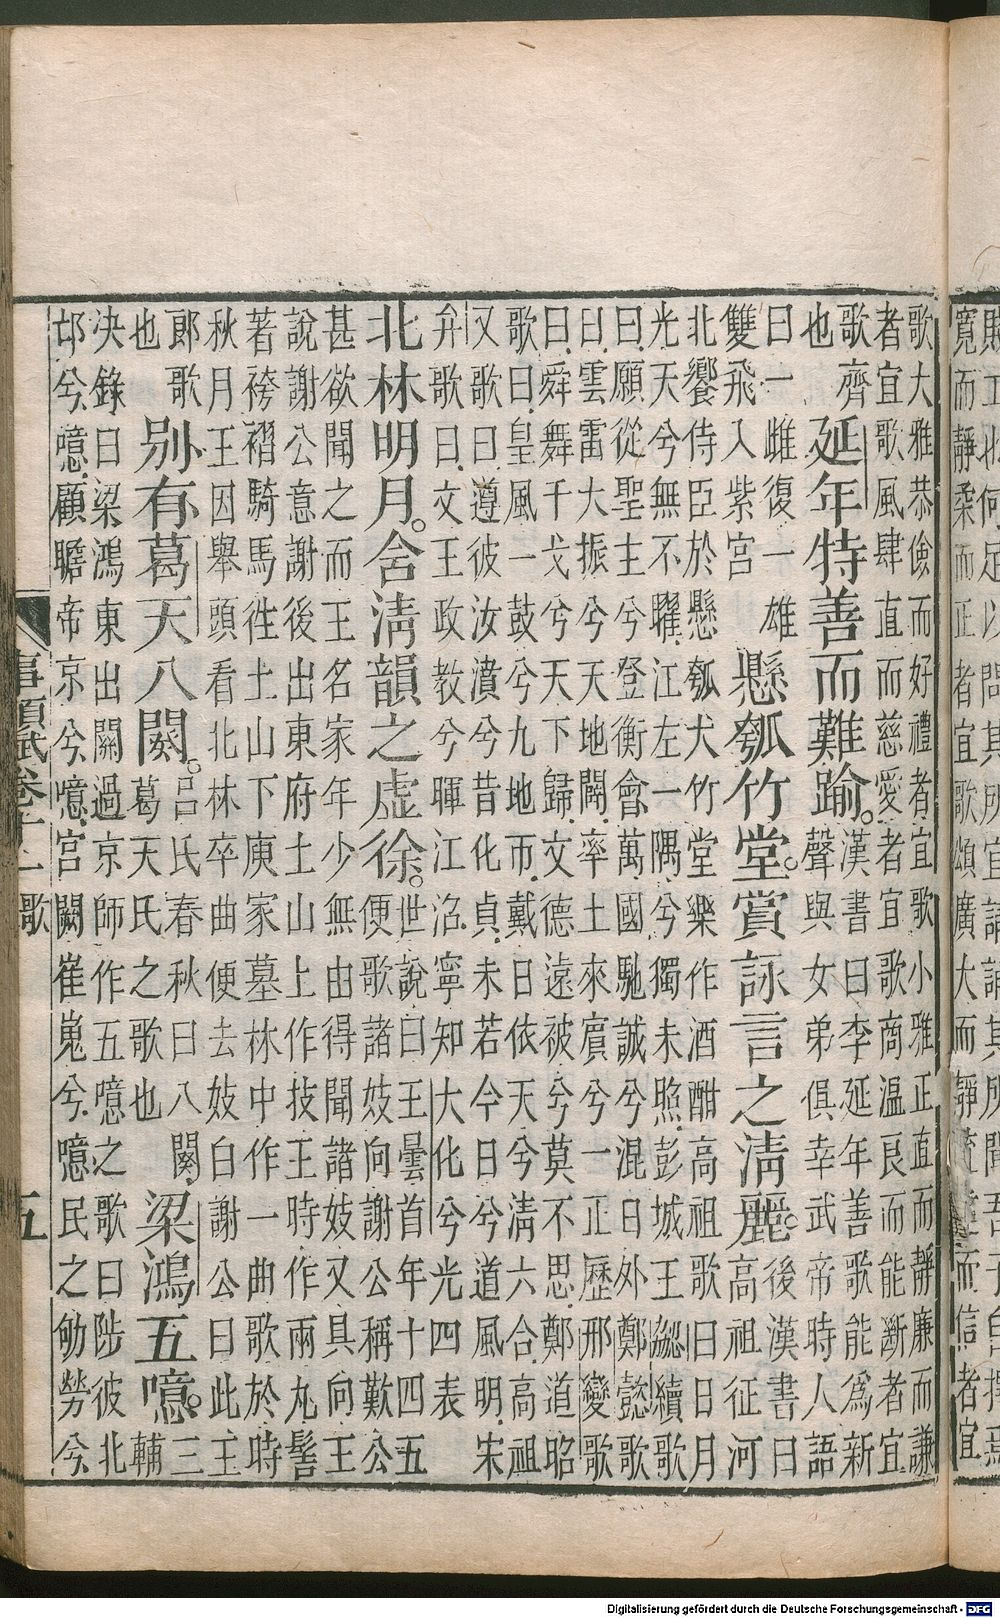 寬而靜柔而正者宜歌頌廣大而靜疏達而信者宜
歌大雅恭儉而好禮者宜歌小雅正直而靜廉而謙
者宜歌風肆直而慈愛者宜歌商溫良而能斷者宜
歌齊
也
延年特善而難踰。
漢書曰李延年善歌能為新
聲與女弟俱幸武帝時人語
曰一雌復一雄
雙飛入紫宮
懸瓠竹堂。賞詠言之清麗。
後漢書曰
高祖征河
北饗侍臣於懸瓠大竹堂樂作酒酣高祖歌曰日月
光天兮無不曜江左一隅兮獨未照彭城王勰續歌
曰願從聖主兮登衡會萬國馳誠兮混日外鄭懿歌
曰雲雷大振兮天地闢率土來賓兮一正歷邢變歌
曰舜舞干戈兮天下歸文德遠被兮莫不思鄭道昭
歌曰皇風一鼓兮九地帀戴日依天兮清六合高祖
又歌曰遵彼汝濆兮昔化貞未若今日兮道風明宋
弁歌曰文王政教兮暉江沼寧知大化兮光四表
北林明月。舍清韻之虛徐。
世說曰王曇首年十四五
便歌諸妓向謝公稱歎公
甚欲聞之而王名家年少無由得聞諸妓又具向王
說謝公意謝後出東府土山上作技王時作兩丸髻
著袴褶騎馬往土山下庾家墓林中作一曲歌於時
秋月王因舉頭看北林卒曲便去妓白謝公曰此王
郎歌
也
別有葛天八闋。
呂氏春秋曰八闋
葛天氏之歌也
梁鴻五噫。
三
輔
決錄曰梁鴻東出關過京師作五噫之歌曰陟彼北
邙兮噫顧瞻帝京兮噫宮闕崔嵬兮噫民之劬勞兮
事類賦卷十一 歌 五
Digitalisierung gefördert durch die Deutsche Forschungsgemeinschaft - DFG